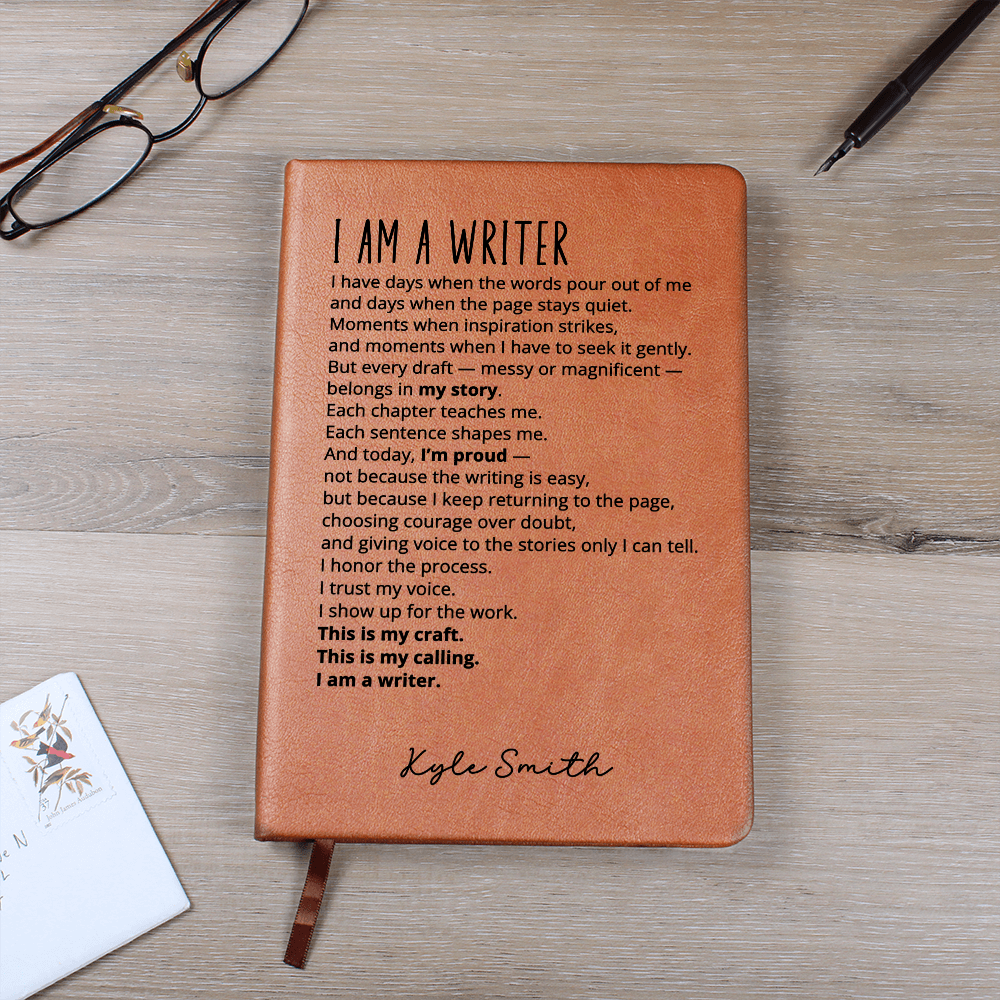 I AM A WRITER
I have days when the words pour out of me
and days when the page stays quiet.
Moments when inspiration strikes,
and moments when I have to seek it gently.
But every draft — messy or magnificent —
belongs in my story.
Each chapter teaches me.
Each sentence shapes me.
And today, I’m proud —
not because the writing is easy,
but because I keep returning to the page,
choosing courage over doubt,
and giving voice to the stories only I can tell.
I honor the process.
I trust my voice.
I show up for the work.
This is my craft.
This is my calling.
I am a writer.
Kyle Smith
37
John James Audubon
N
L